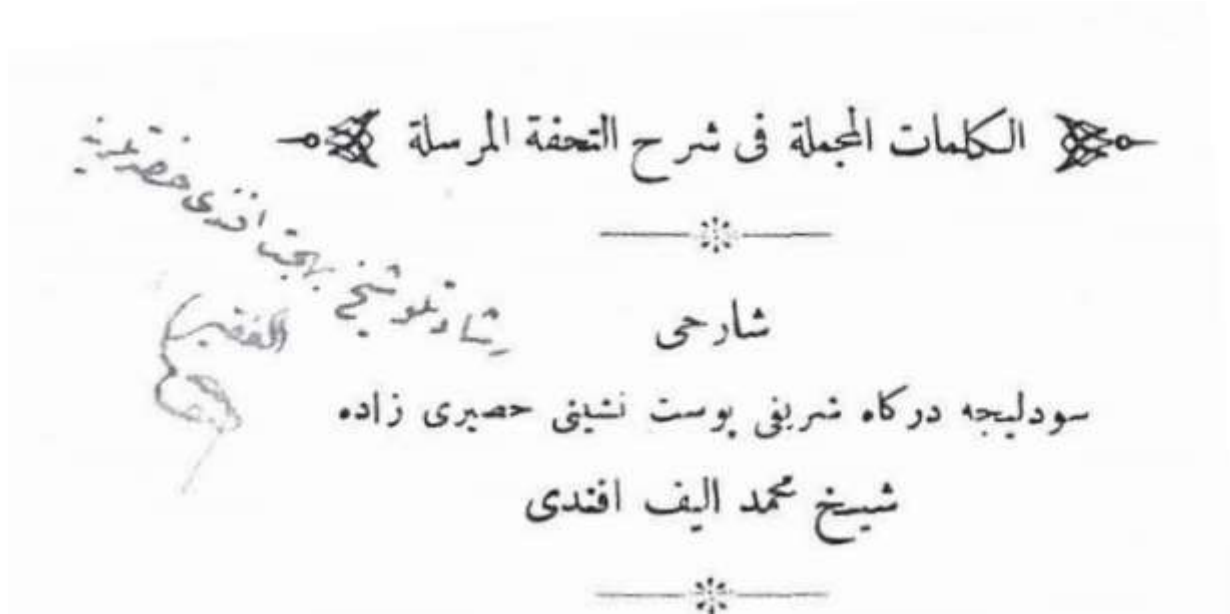 الكلمات المجملة فى شرح التحفة المرسلة
شارحى
سودليجه دركاه شريفى پوست نشينى حصيرى زاده
شيخ محمد اليف افندى
رشادتلو شيخ بهجت افندى حضرتلرينه
الفقير